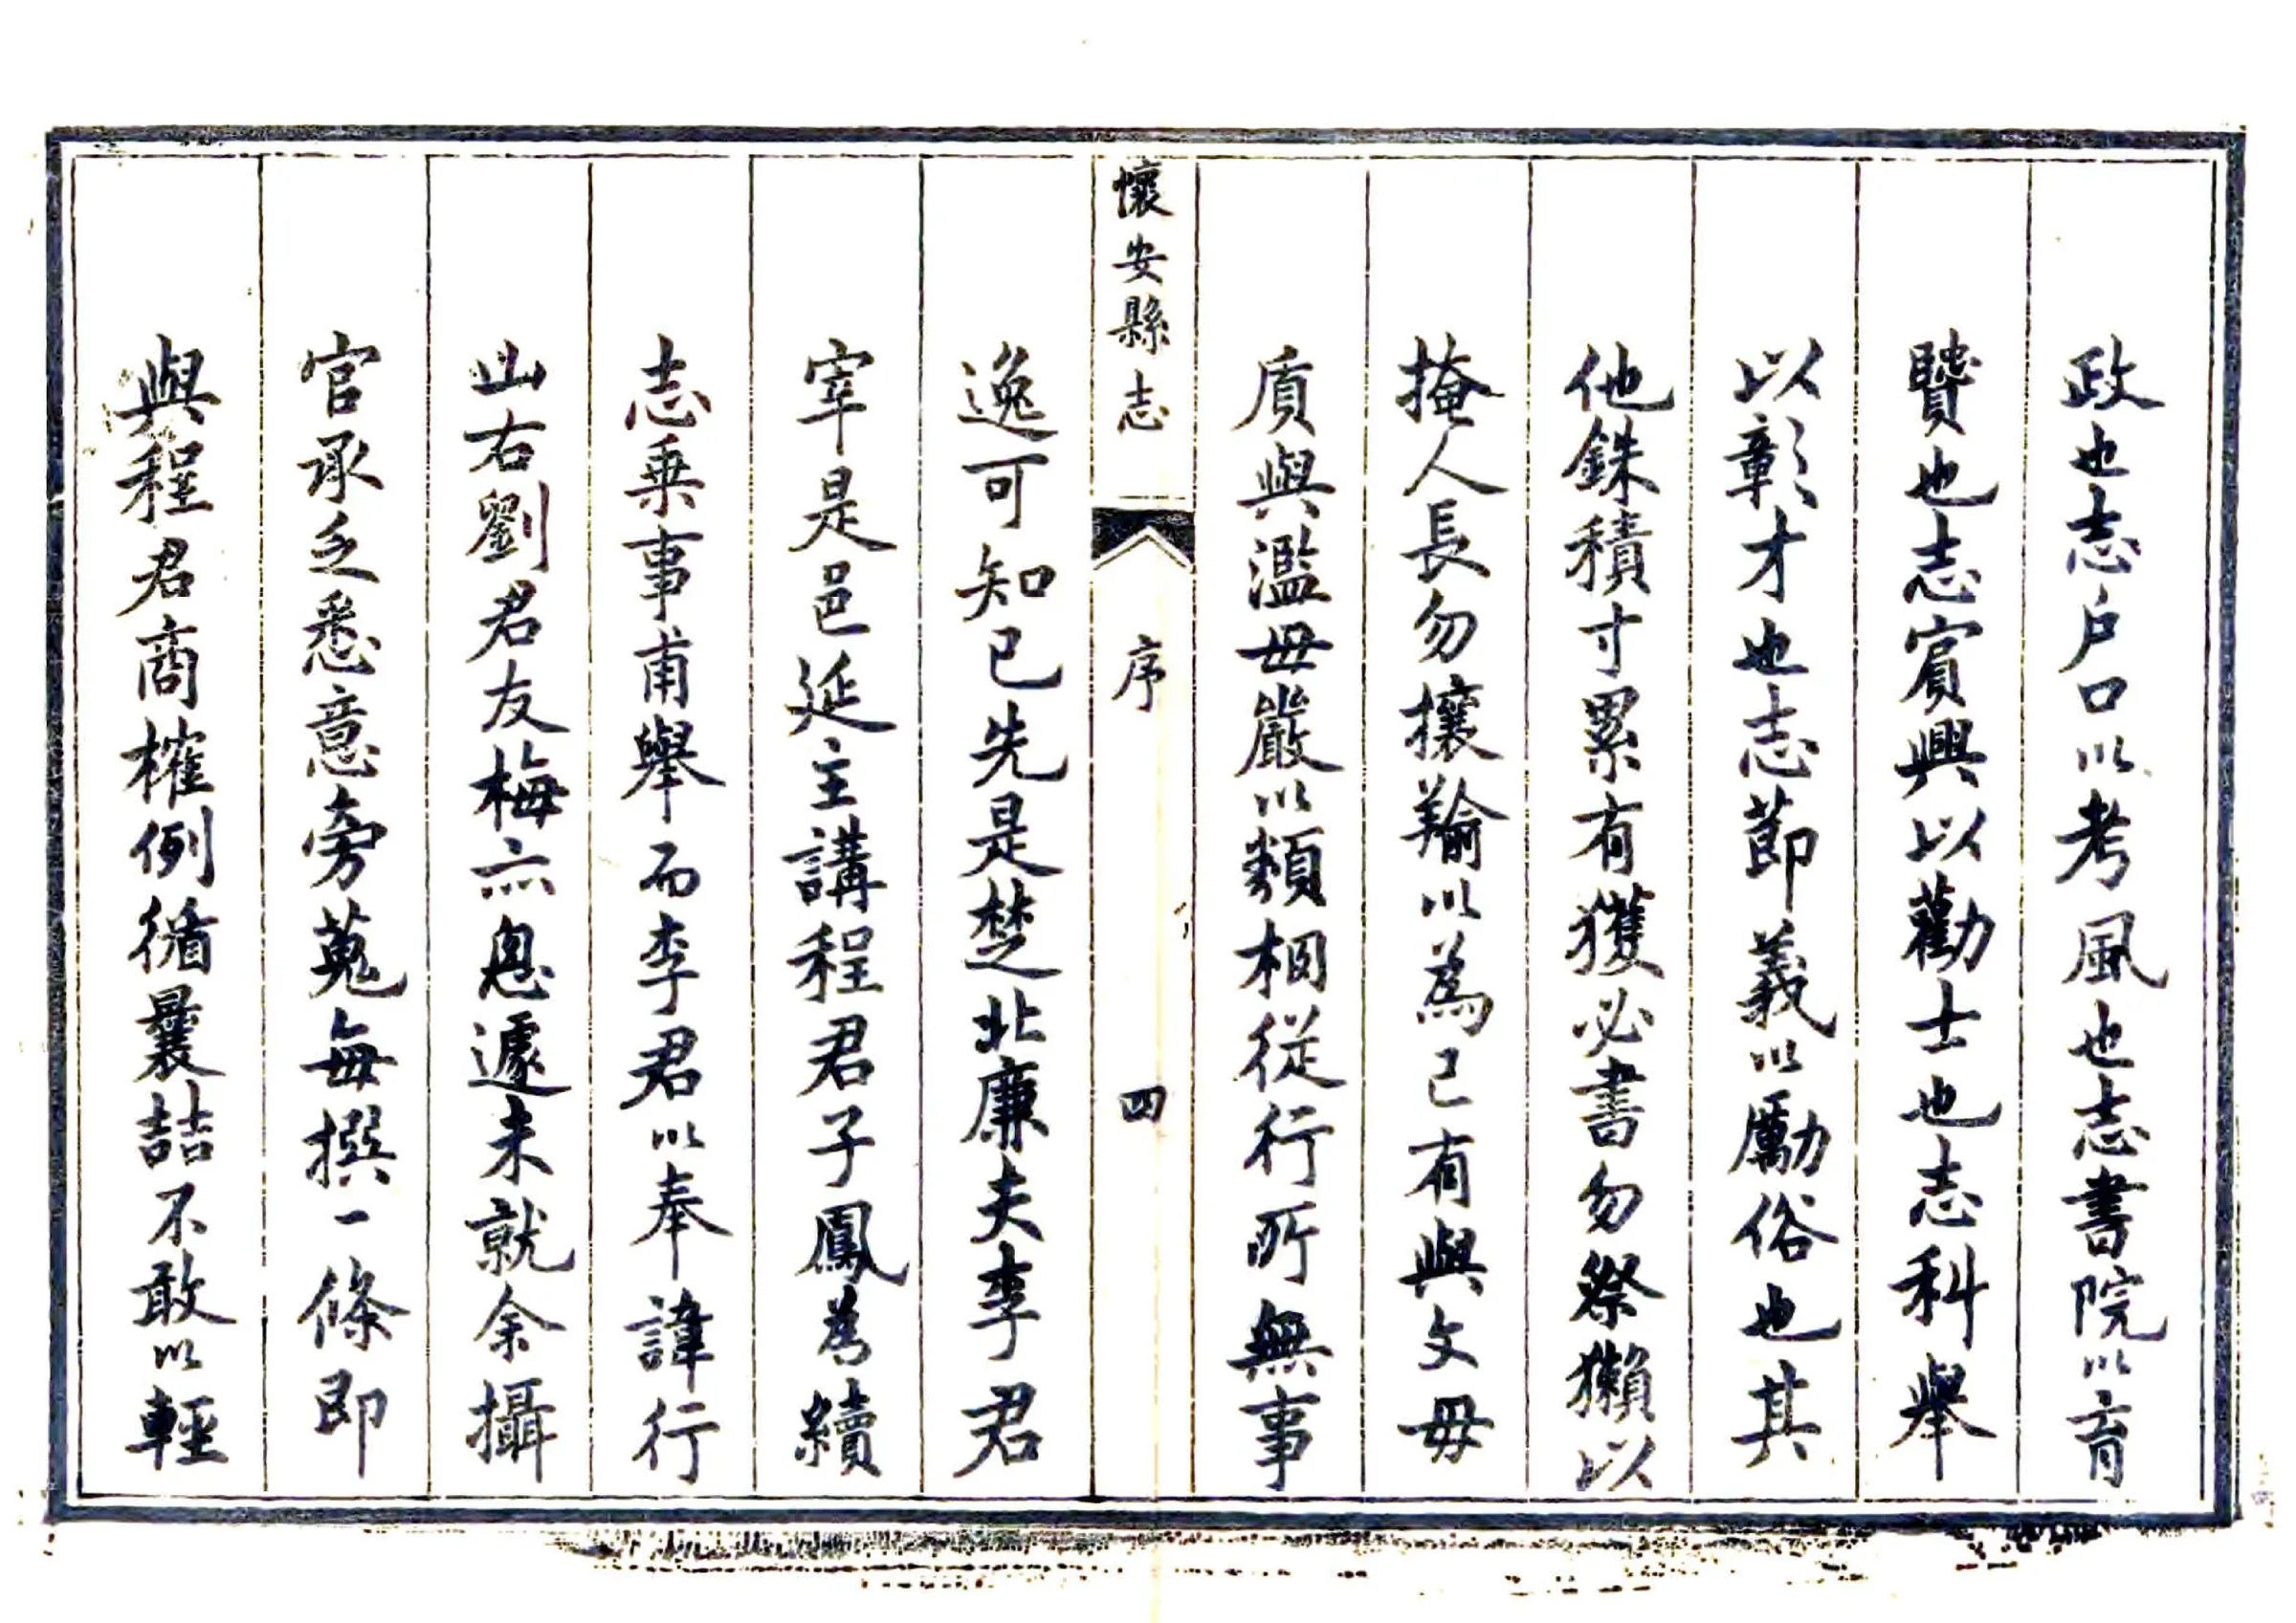 政也志戶口以考風也志書院以育
賢也志賓興以勸士也志科舉
以彰才也志節義以勵俗也其
他銖積寸累有獲必書勿祭獺以
掩人長勿攘羭以為己有與文毋
質與濫毋嚴以類相從行所無事
懷安縣志
序
四
逸可知已先是楚北廉夫李君
宰是邑延主講程君子鳳為續
志乘事甫舉而李君以奉諱行
山右劉君友梅亦悤遽未就余攝
官承乏悉意旁蒐每撰一條即
與程君商榷例循曩喆不敢以輕